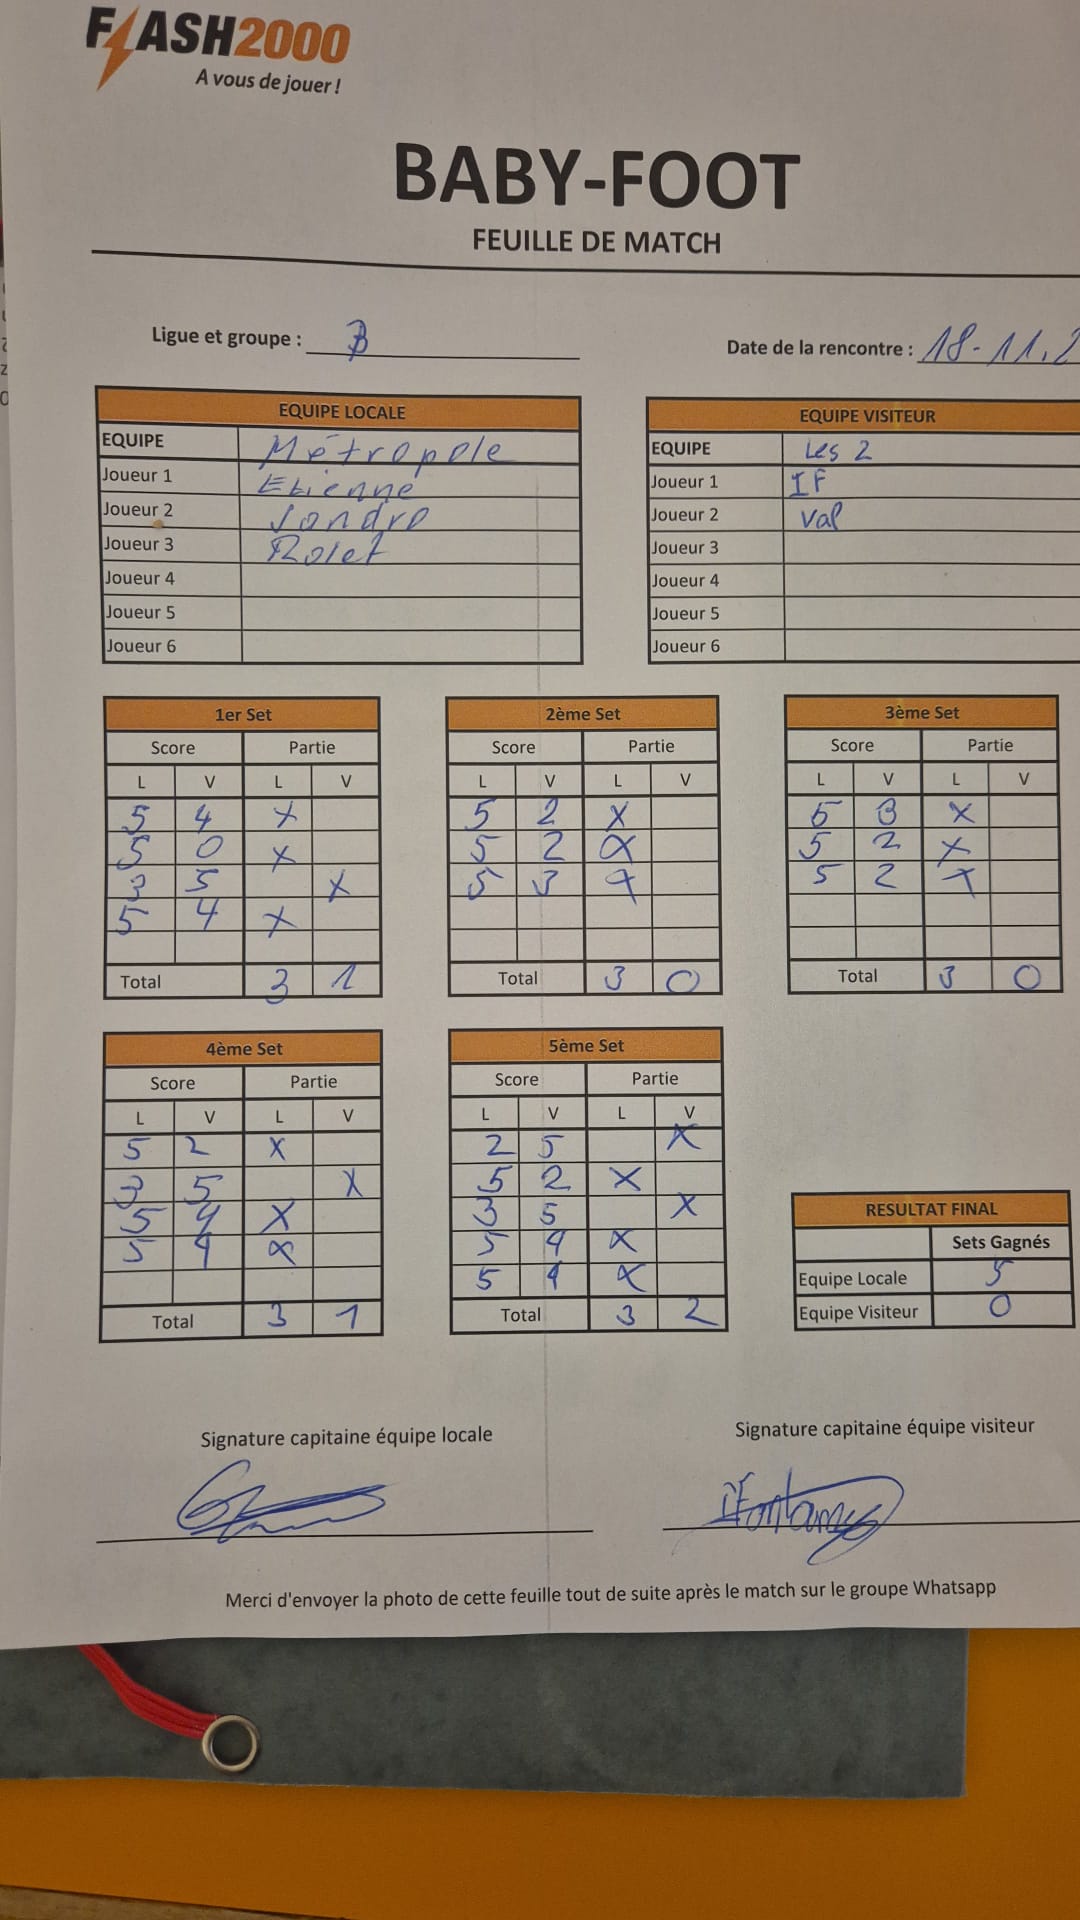 FLASH2000
A vous de jouer !
BABY-FOOT
FEUILLE DE MATCH
Ligue et groupe : B
Date de la rencontre : 18-11.2
EQUIPE LOCALE
EQUIPE Métropole
Joueur 1 Etienne
Joueur 2 Sandro
Joueur 3 Rolet
Joueur 4
Joueur 5
Joueur 6
EQUIPE VISITEUR
EQUIPE Les 2
Joueur 1 IF
Joueur 2 Val
Joueur 3
Joueur 4
Joueur 5
Joueur 6
1er Set
Score Partie
L V L V
5 4 X
5 0 X
3 5 X
5 4 X
Total 3 1
2ème Set
Score Partie
L V L V
5 2 X
5 2 X
5 3 X
Total 3 0
3ème Set
Score Partie
L V L V
5 3 X
5 2 X
5 2 X
Total 3 0
4ème Set
Score Partie
L V L V
5 2 X
3 5 X
5 4 X
5 4 X
Total 3 1
5ème Set
Score Partie
L V L V
2 5 X
5 2 X
3 5 X
5 4 X
5 4 X
Total 3 2
RESULTAT FINAL
Sets Gagnés
Equipe Locale 5
Equipe Visiteur 0
Signature capitaine équipe locale
Signature capitaine équipe visiteur
Merci d'envoyer la photo de cette feuille tout de suite après le match sur le groupe Whatsapp